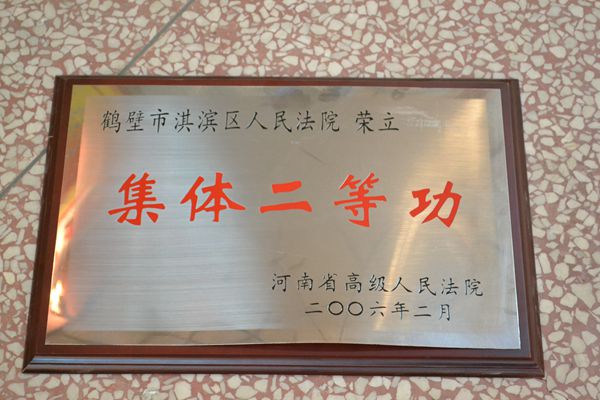 鹤壁市淇滨区人民法院 荣立
集体二等功
河南省高级人民法院
二〇〇六年二月